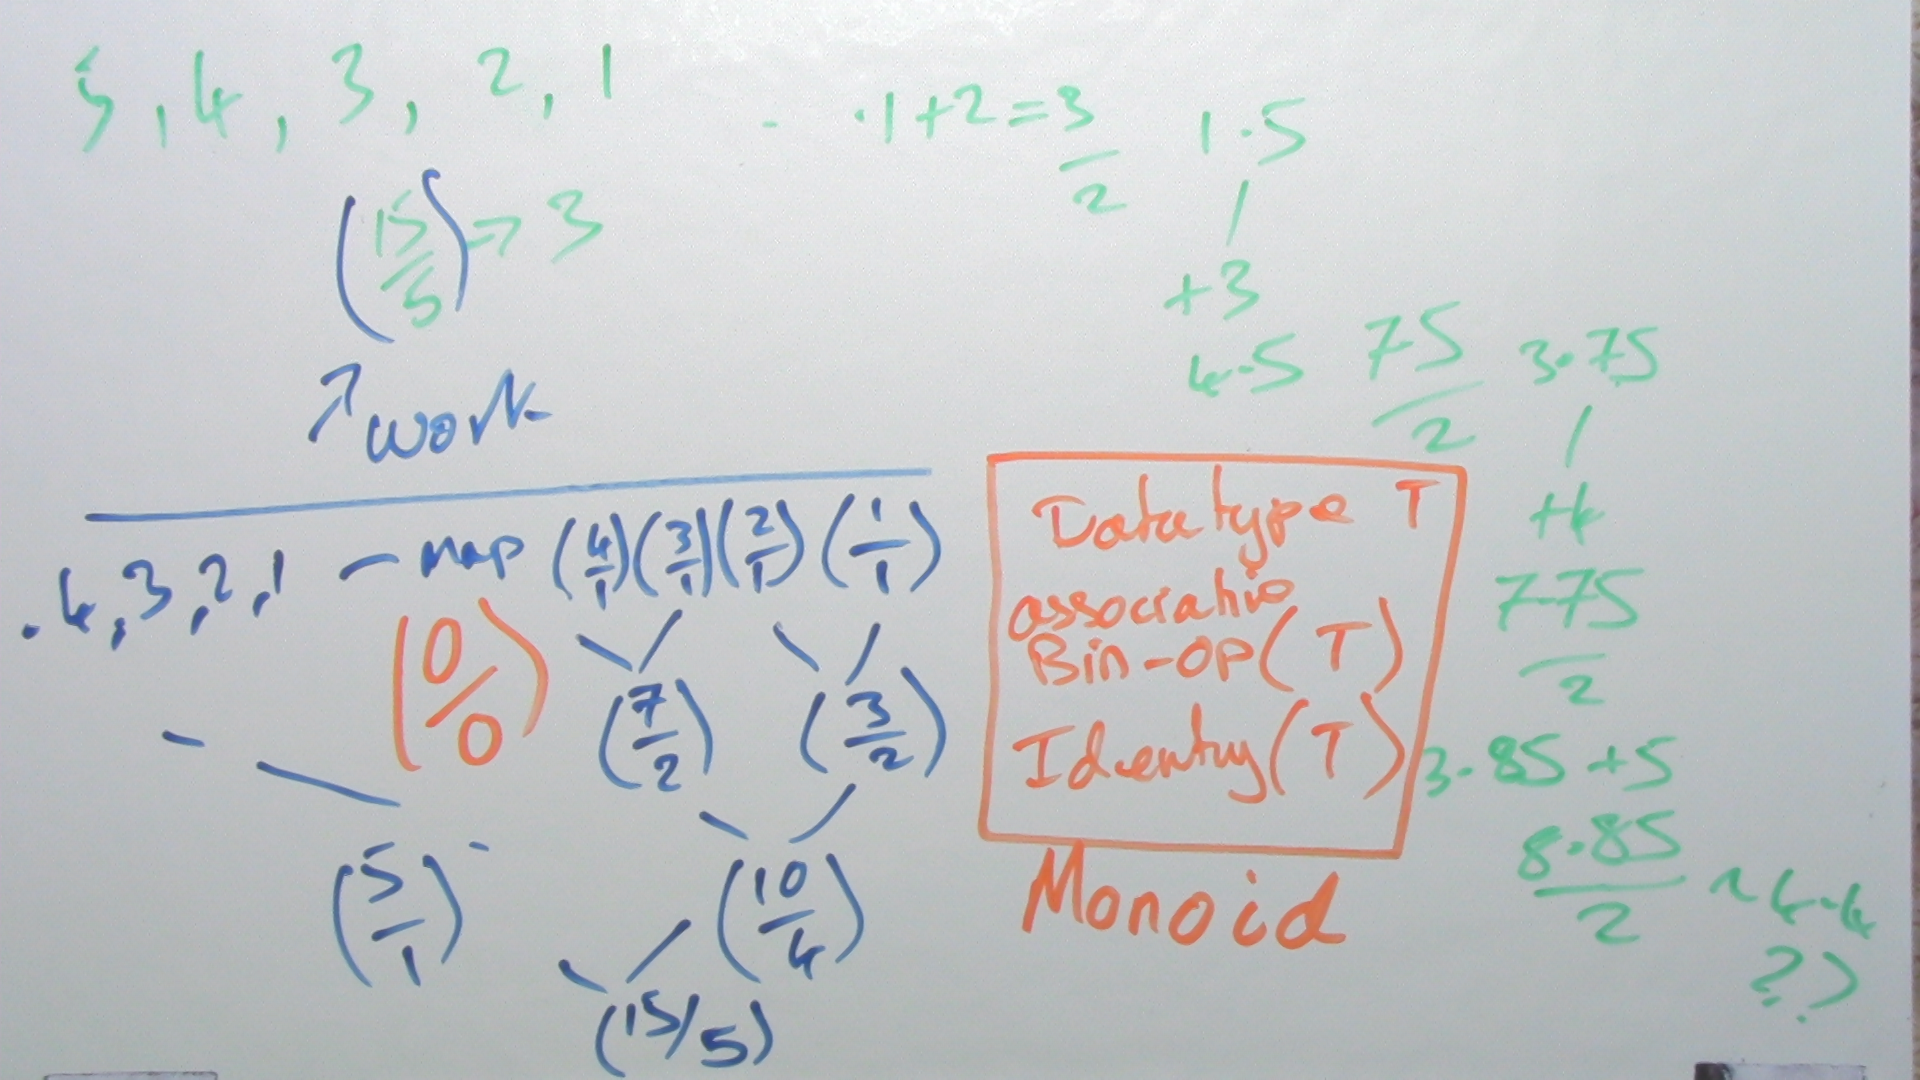 5, 4, 3, 2, 1
(15/5) => 3
↗ work
.1+2=3/2
1.5
+3
4.5
75/2
3.75
+4
7.75
2
3.85 +5
8.85/2 ~ 4.4
??
.4,3,2,1 – map (4/1)(3/1)(2/1)(1/1)
(0/0)
(7/2) (3/2)
(5/1) (10/4)
(15/5)
Datatype T
associative
Bin-op(T)
Identity(T)
Monoid